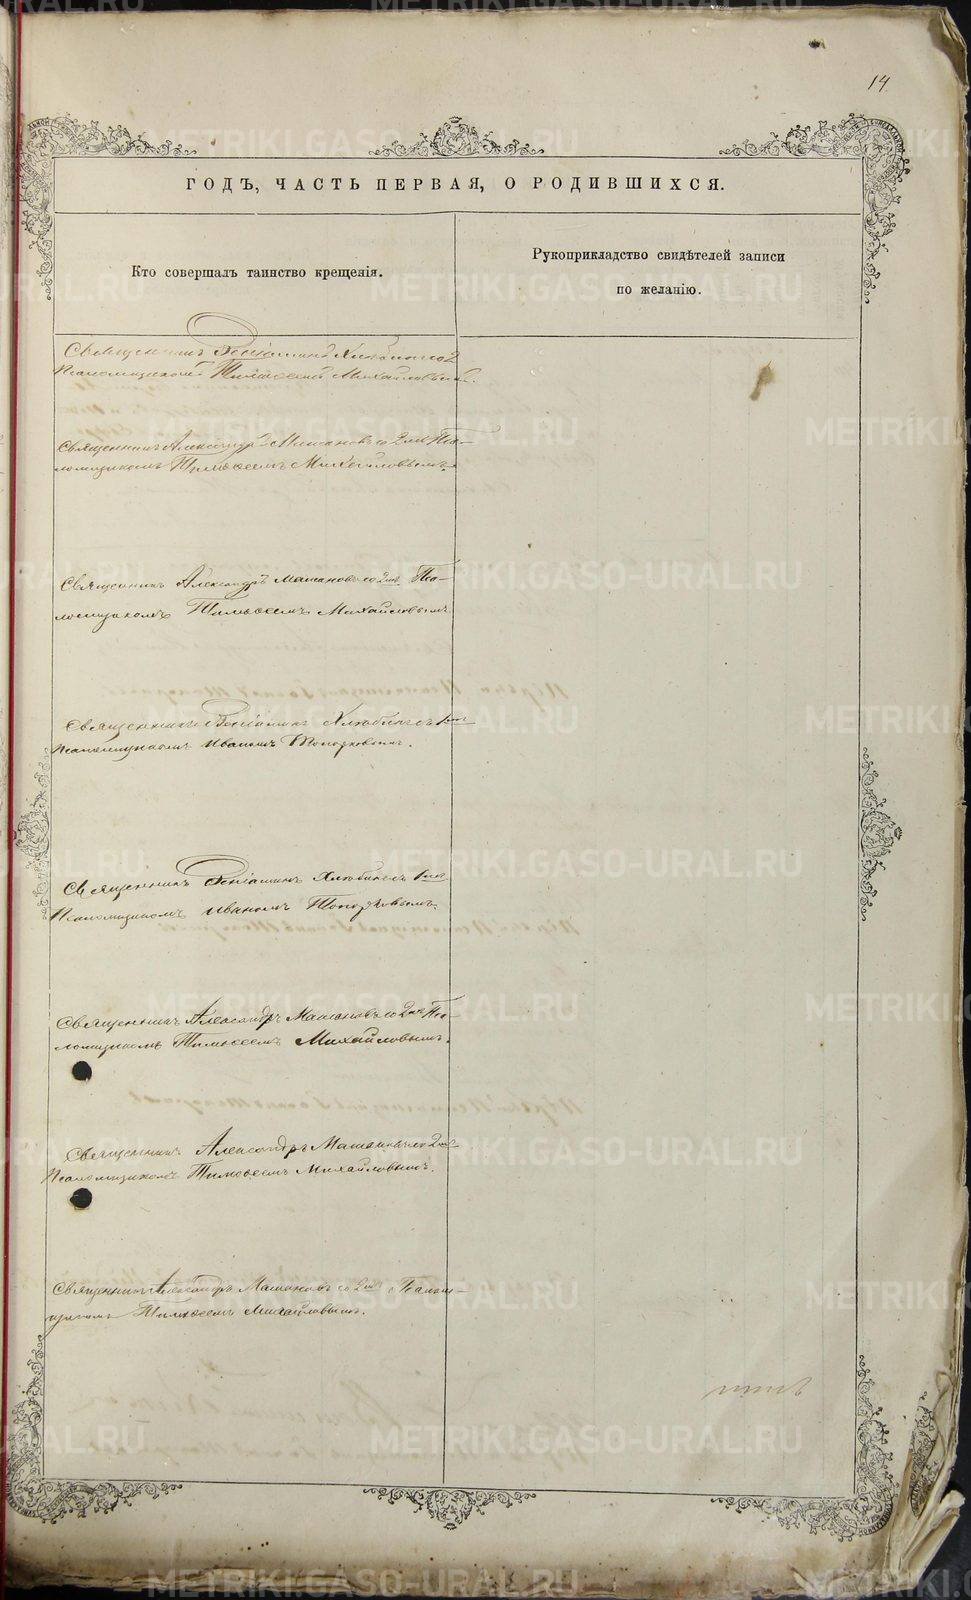 14
ГОДЪ, ЧАСТЬ ПЕРВАЯ, О РОДИВШИХСЯ.
Кто совершалъ таинство крещенія.
Рукоприкладство свидѣтелей записи
по желанію.
Священникъ Веніаминъ Хлюбинъ со 2
Псаломщикомъ Тимоѳеемъ Михайловымъ.
Священникъ Александръ Матановъ со 2мъ Пса-
ломщикомъ Тимоѳеемъ Михайловымъ.
Священникъ Александръ Матановъ со 2мъ Пса-
ломщикомъ Тимоѳеемъ Михайловымъ
Священникъ Веніаминъ съ 1мъ
Псаломщикомъ Иваномъ Топорковымъ.
Священникъ Веніаминъ съ 1мъ
Псаломщикомъ Иваномъ Топорковымъ.
Священникъ Александръ Матановъ со 2мъ Пса-
ломщикомъ Тимоѳеемъ Михайловымъ.
Священникъ Александръ Матановъ со 2мъ
Псаломщикомъ Тимоѳеемъ Михайловымъ.
Священникъ Александръ Матановъ со 2мъ Псалом-
щикомъ Тимоѳеемъ Михайловымъ.
METRIKI.GASO-URAL.RU